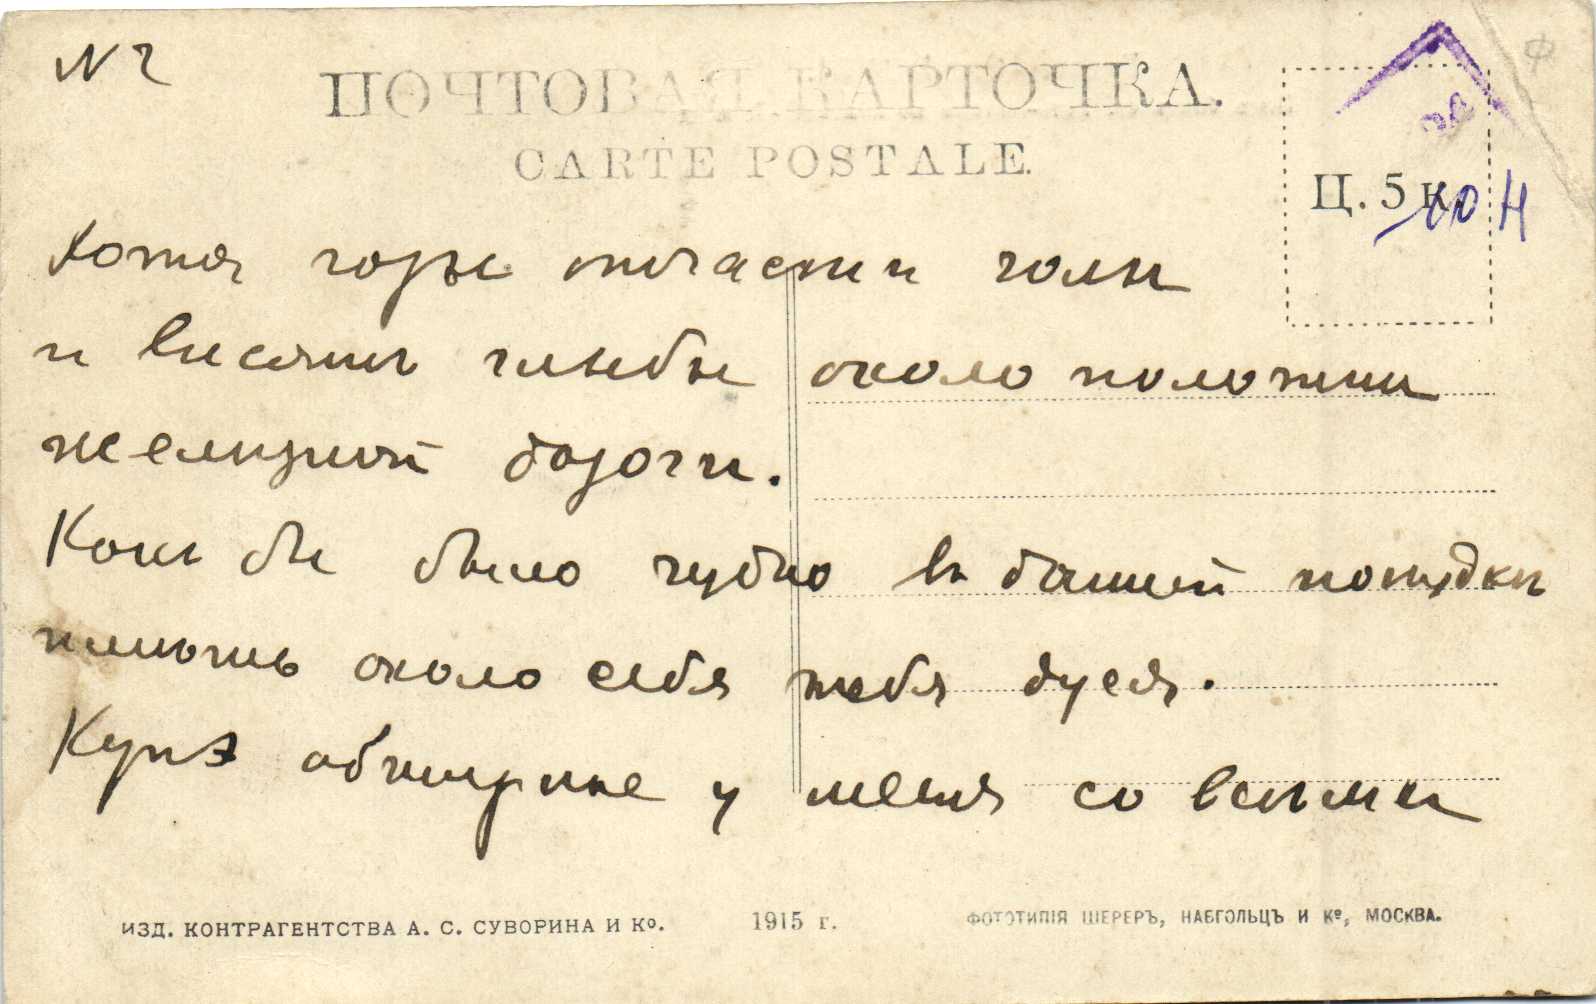 N 2
ПОЧТОВАЯ КАРТОЧКА.
CARTE POSTALE.
Ц. 5 к.
Хотя горы отчасти голы
и висят глыбы около полотна
железной дороги.
Как бы было чудно в дальней поездки
иметь около себя тебя дуся.
Купэ обширное у меня со всеми
ИЗД. КОНТРАГЕНТСТВА А. С. СУВОРИНА И Ко.
1915 г.
ФОТОТИПІЯ ШЕРЕРЪ, НАБГОЛЬЦЪ И Ко, МОСКВА.